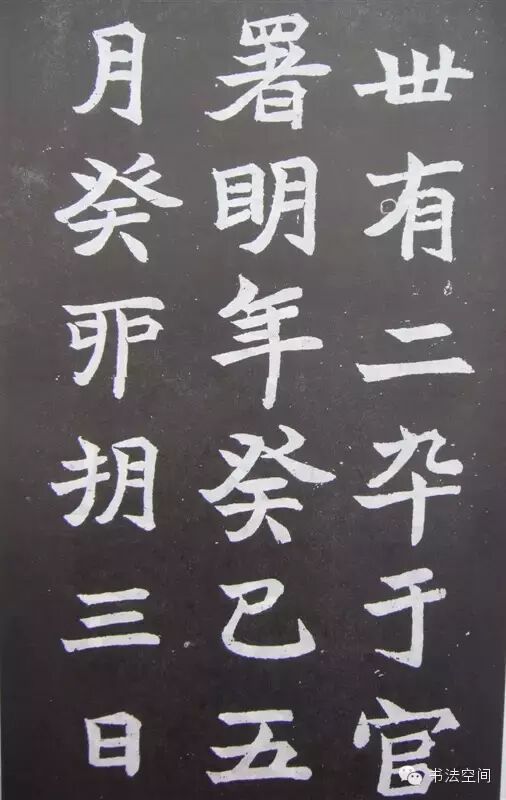 丗有二卒于官
署明年癸巳五
月癸卯朔三日
书法空间